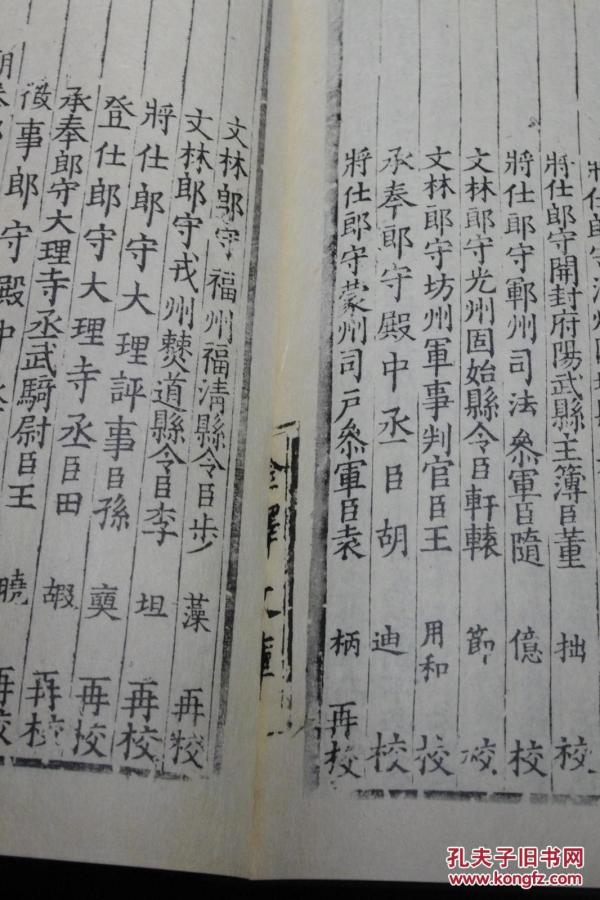 將仕郎守開封府陽武縣主簿臣董 拙 校
將仕郎守鄆州司法叅軍臣隨 億 校
文林郎守光州固始縣令臣軒轅 節 校
文林郎守坊州軍事判官臣王 用和 校
承奉郎守殿中丞臣胡 迪 校
將仕郎守蒙州司戶叅軍臣袁 柄 再校
文林郎守福州福清縣令臣步 藻 再校
文林郎守戎州僰道縣令臣李 坦 再校
將仕郎守大理評事臣孫 奭 再校
登仕郎守大理寺丞臣田 嘏 再校
承奉郎守大理寺丞武騎尉臣王 曉 再校
事郎守殿中
孔夫子旧书网
www.kongfz.com